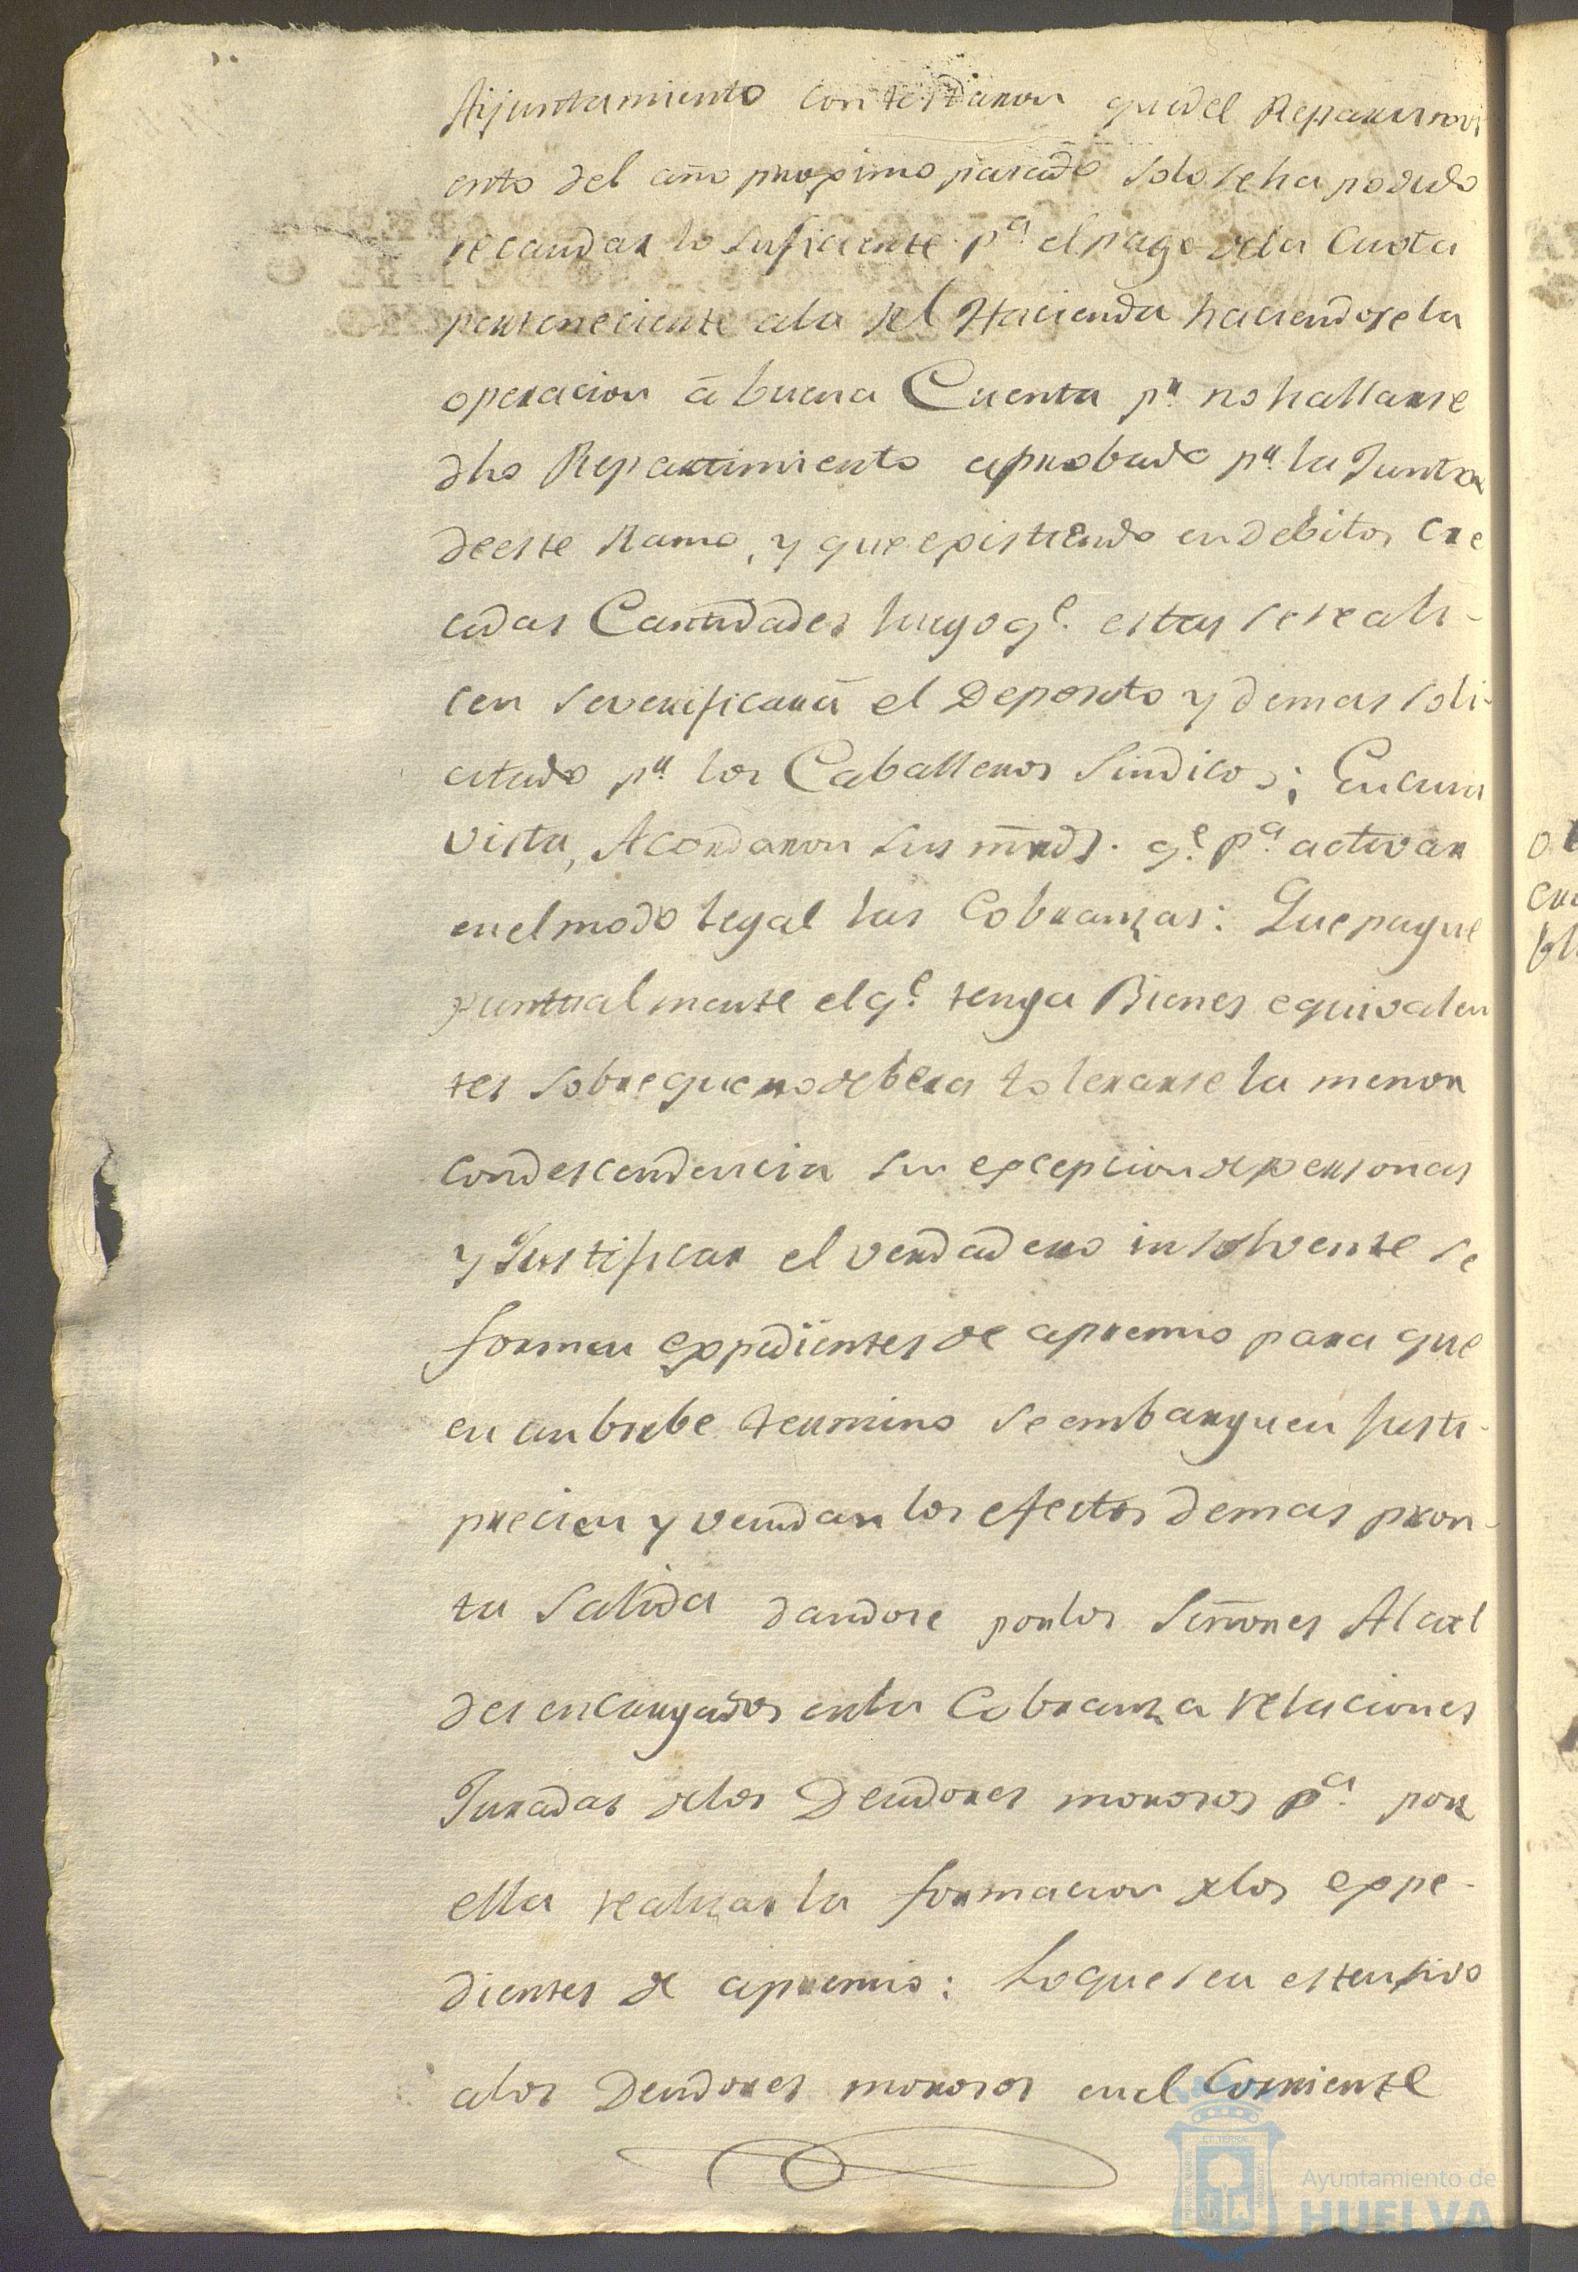 Aijuntamiento contestaron quedel Repartimi
ento del año proximo parado solo se ha podido
recaudar lo suficiente p.ª el pago dela Cuota
perteneciente ala Rl Hacienda haciendose la
operacion á buena Cuenta p.r no hallarse
dho Repartimiento aprobado p.r la Junta
de este Ramo, y que existiendo en debitos cre
cidas Cantidades luego q.e estas se reali-
cen severificará el Deposito y demas soli-
citado p.r los Caballeros Sindicos; En cuia
vista, Acordaron sus mrds. q.e p.ª activar
en el modo legal las Cobranzas: Que pague
puntualmente el q.e tenga Bienes equivalen
tes sobre que no debera tolerarse la menor
condescendencia sin excepcion de personas
y Justificar el verdadero insolvente se
formen expedientes de apremio para que
en un brebe termino se embarguen Justi-
precien y vendan los efectos de mas pron-
ta salida dandose por los Señores Alcal
des encargados enla Cobranza relaciones
Juradas delos Deudores morosos p.ª por
ella realizar la formacion delos expe-
dientes de apremio: Lo que sea estensivo
alos Deudores morosos enel Corriente
Ayuntamiento de
HUELVA